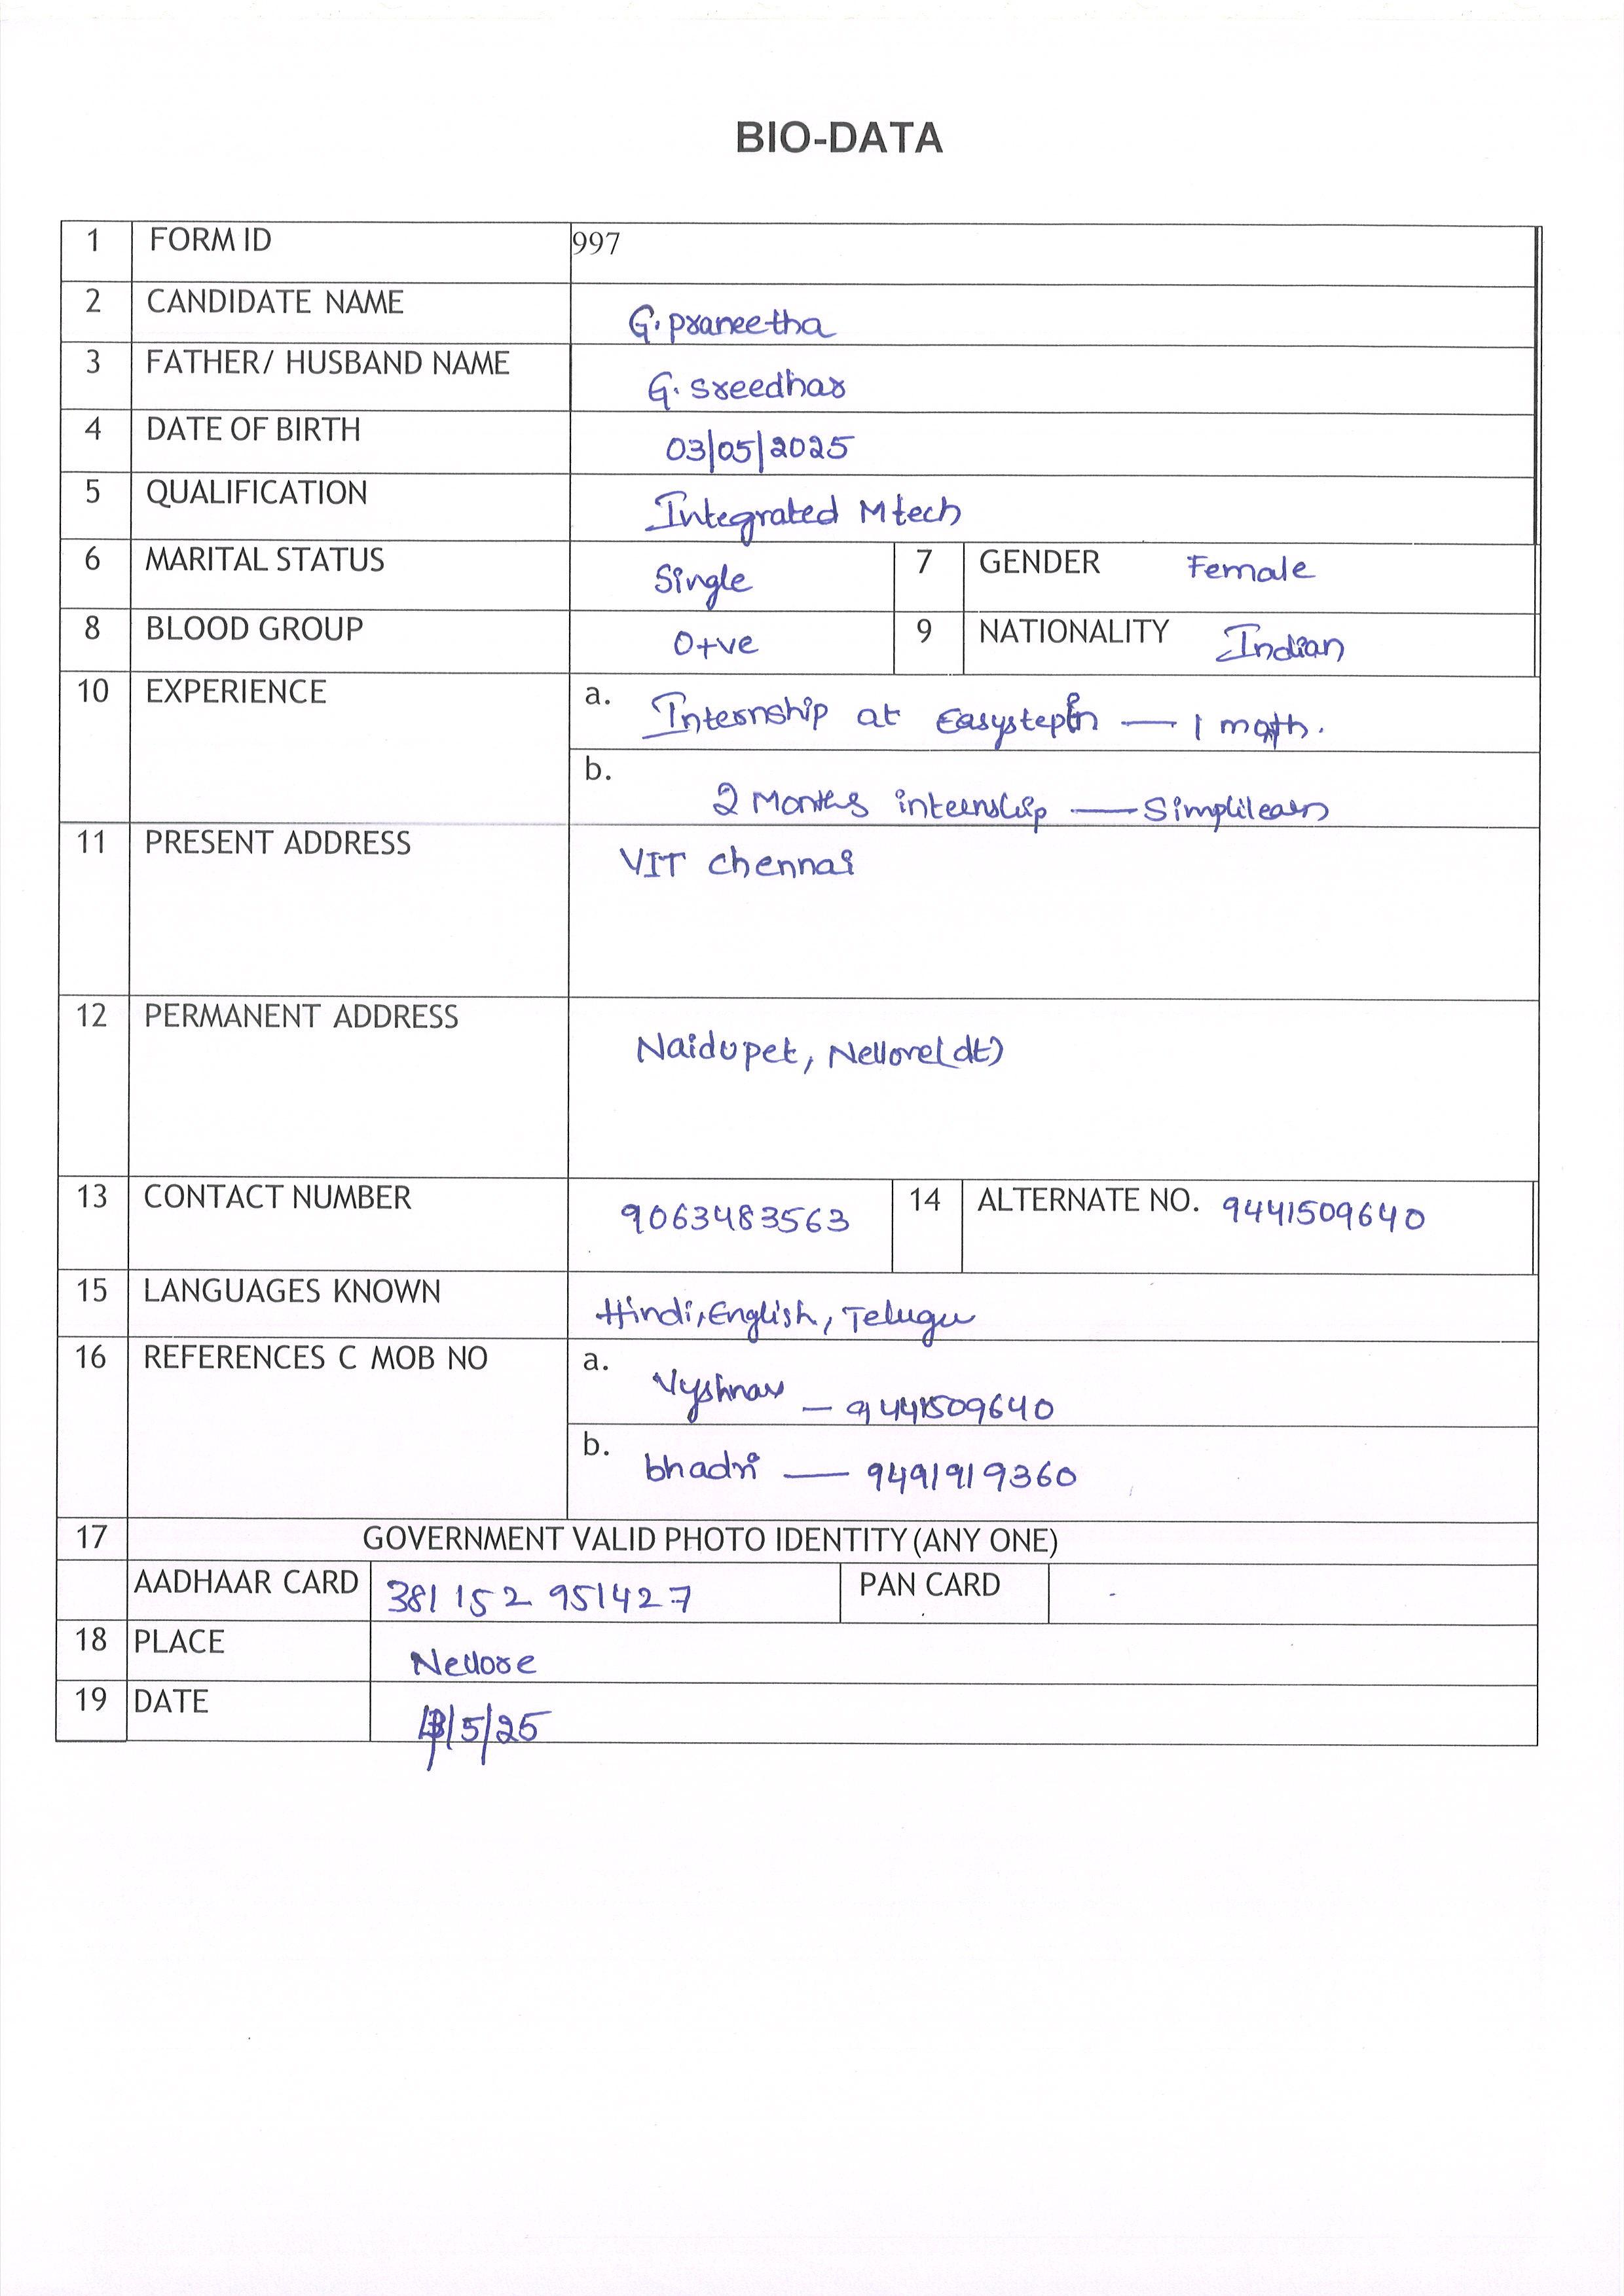 BIO-DATA
1 FORM ID 997
2 CANDIDATE NAME G. praneetha
3 FATHER/ HUSBAND NAME G. Sreedhar
4 DATE OF BIRTH 03/05/2025
5 QUALIFICATION Integrated Mtech
6 MARITAL STATUS Single 7 GENDER Female
8 BLOOD GROUP O+ve 9 NATIONALITY Indian
10 EXPERIENCE a. Internship at Easystepin — 1 month.
b. 2 Months internship — Simplilearn
11 PRESENT ADDRESS VIT chennai
12 PERMANENT ADDRESS Naidupet, Nellore(dt)
13 CONTACT NUMBER 9063483563 14 ALTERNATE NO. 9441509640
15 LANGUAGES KNOWN Hindi, English, Telugu
16 REFERENCES C MOB NO a. Vyshnav — 9441509640
b. bhadri — 9491919360
17 GOVERNMENT VALID PHOTO IDENTITY (ANY ONE)
AADHAAR CARD 381 152 951427 PAN CARD -
18 PLACE Nellore
19 DATE /5/25